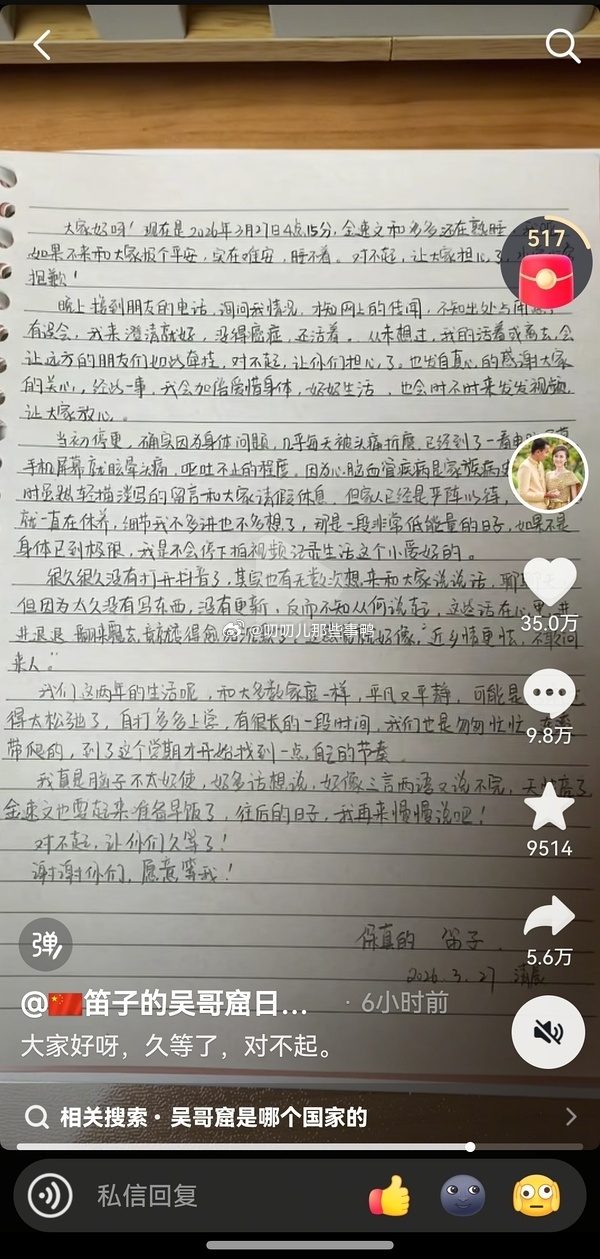 大家好呀！现在是2026年3月27日4点15分，金速文和多多还在熟睡，
如果不来和大家报个平安，实在难安，睡不着。对不起，让大家担心了，
抱歉！
517
晚上接到朋友的电话，询问我情况，才知网上的传闻，不知出处与用意，
有误会，我来澄清就好，没得癌症，还活着。从未想过，我的活着或离去，会
让远方的朋友们如此牵挂，对不起，让你们担心了。也发自真心的感谢大家
的关心，经此一事，我会加倍爱惜身体，好好生活，也会时不时来发发视频，
让大家放心。
当初停更，确实因为身体问题，几乎每天被头痛折磨，已经到了一看电
手机屏幕就眩晕头痛，呕吐不止的程度。因为心脑血管疾病是家族病史
时虽然轻描淡写的留言和大家请假休息，但家人已经是严阵以待，
就一直在休养，细节我不多讲也不多想了，那是一段非常低能量的日子，如果不是
身体已到极限，我是不会停下拍视频记录生活这个小爱好的。
很久很久没有打开抖音了，其实也有无数次想来和大家说说话，聊
但因为太久没有写东西，没有更新，反而不知从何说起，这些话在心里，进
进退退，翻来
@叨叨儿那些事鸭
好像“近乡情更怯，不敢问
来人。”
我们这两年的生活呢，和大多数家庭一样，平凡又平静，可能是
得太松弛了，自打多多上学，有很长的一段时间，我们也是匆匆忙忙，
带爬的，到了这个学期才开始找到一点自己的节奏。
我真是脑子不太好使，好多话想说，好像三言两语又说不完，天快亮了，
金速文也要起来准备早饭了，往后的日子，我再来慢慢说吧！
对不起，让你们久等了！
谢谢你们，愿意等我！
你真的 笛子．
2026.3.27 清晨
35.0万
9.8万
9514
5.6万
弹
@🇨🇳笛子的吴哥窟日... · 6小时前
大家好呀，久等了，对不起。
相关搜索 · 吴哥窟是哪个国家的
私信回复